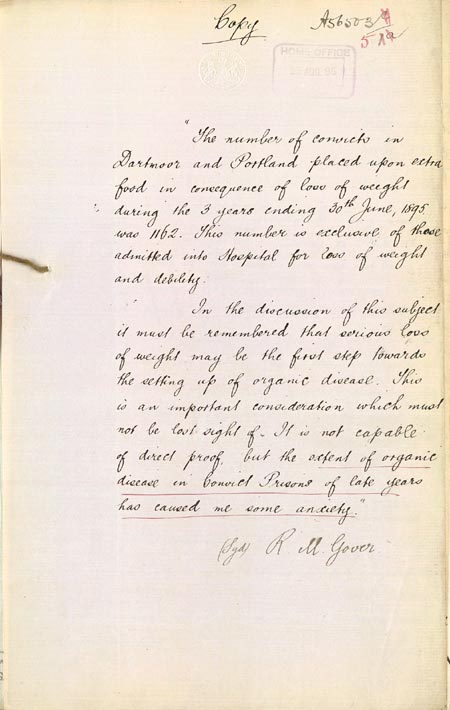 Copy
A56503
HOME OFFICE
AUG. 95
"The number of convicts in
Dartmoor and Portland placed upon extra
food in consequence of loss of weight
during the 3 years ending 30th June, 1895
was 1162. This number is exclusive of those
admitted into Hospital for loss of weight
and debility.
In the discussion of this subject
it must be remembered that serious loss
of weight may be the first step towards
the setting up of organic disease. This
is an important consideration which must
not be lost sight of. It is not capable
of direct proof, but the extent of organic
disease in Convict Prisons of late years
has caused me some anxiety."
(Sgd) R. M. Gover.